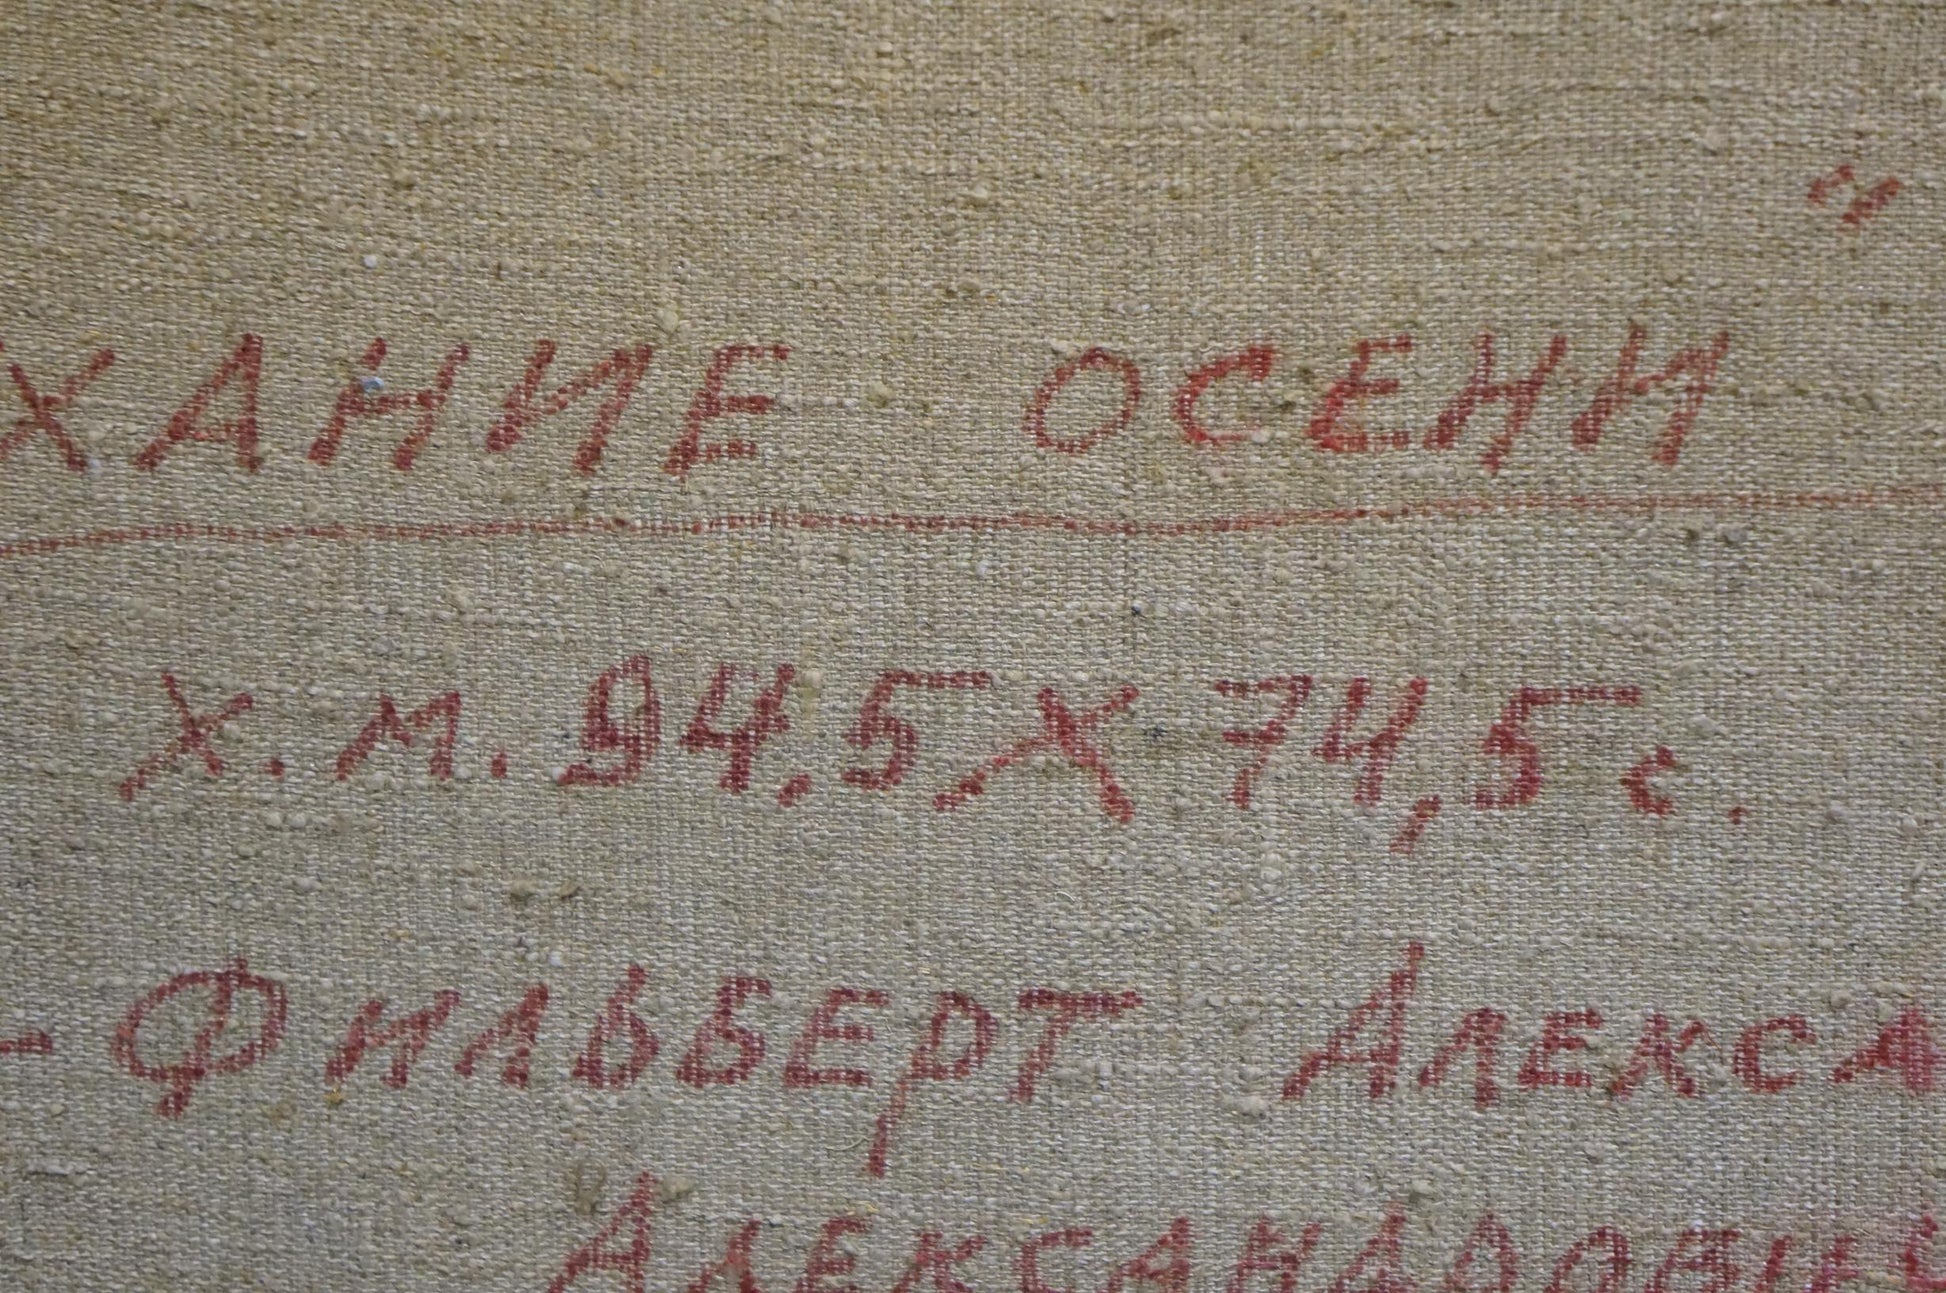 ХАНИЕ ОСЕНИ "
х.м. 94,5 X 74,5 с.
- Фильберт Алекса
Александрович